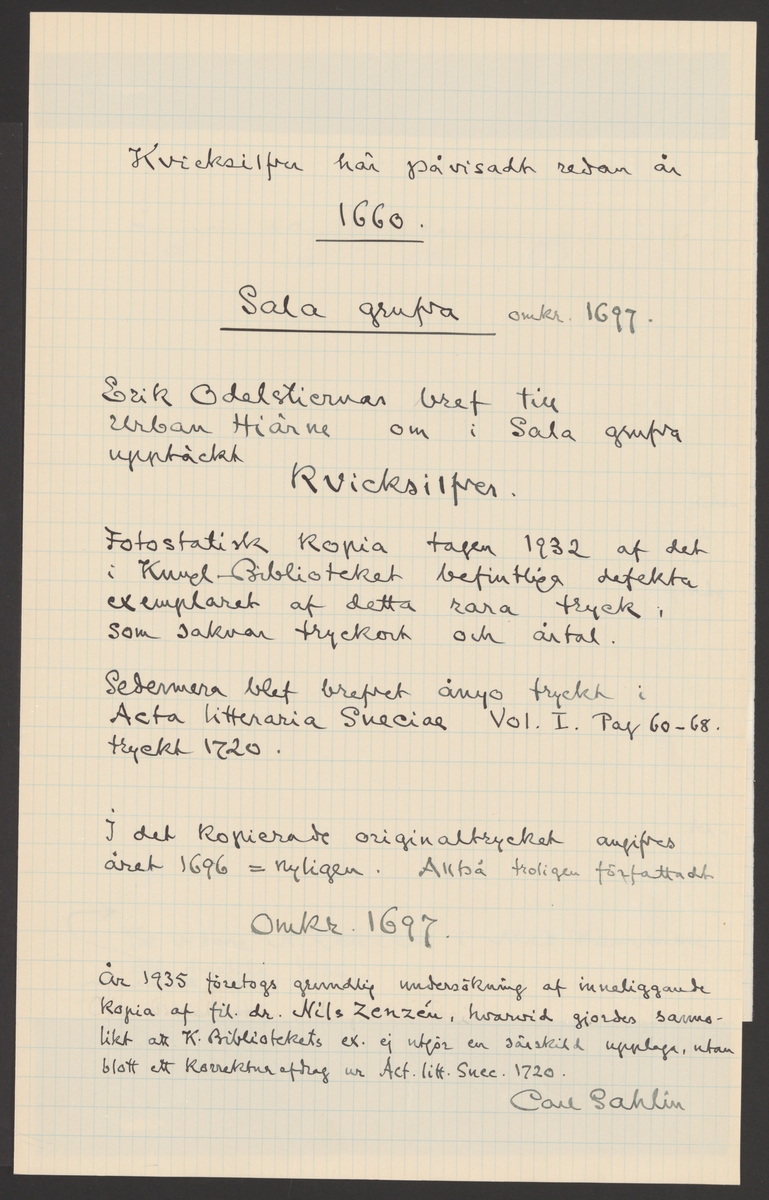 Kvicksilfver här påvisadt redan år
1660.
Sala grufva omkr. 1697.
Erik Odelstiernas bref till
Urban Hiärne om i Sala grufva
upptäckt
Kvicksilfver.
Fotostatisk kopia tagen 1932 af det
i Kungl-Biblioteket befintliga defekta
exemplaret af detta rara tryck,
som saknar tryckort och årtal.
Sedermera blef brefvet ånyo tryckt i
Acta litteraria Sueciae Vol. I. Pag 60-68.
tryckt 1720.
I det kopierade originaltrycket angifves
året 1696 = nyligen. Alltså troligen författadt
Omkr. 1697.
År 1935 företogs grundlig undersökning af inneliggande
kopia af fil. dr. Nils Zenzén, hvarvid gjordes sanno-
likt att K. Bibliotekets ex. ej utgör en särskild upplaga, utan
blott ett korrekturafdrag ur Act. litt. Suec. 1720.
Carl Sahlin